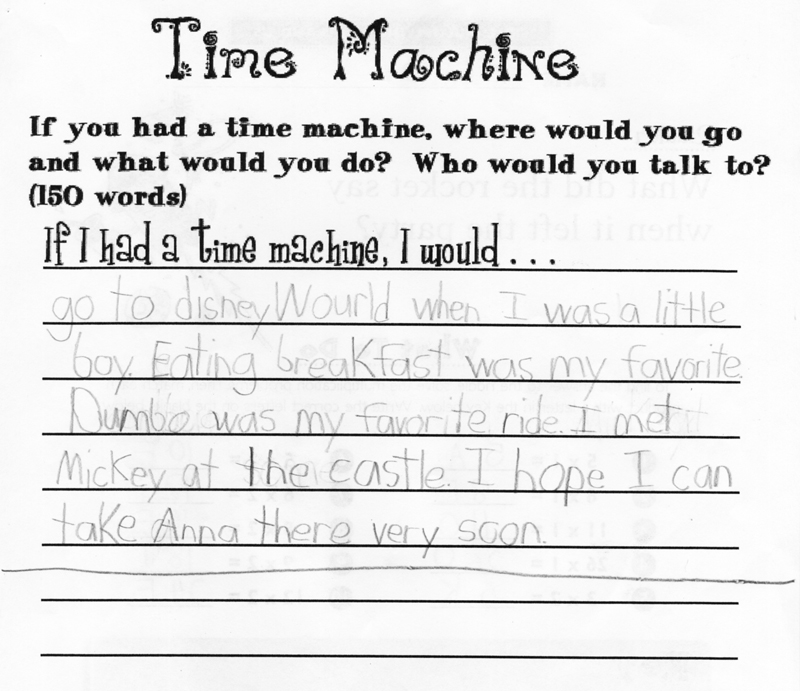 Time Machine
If you had a time machine, where would you go
and what would you do? Who would you talk to?
(150 words)
If I had a time machine, I would . . .
go to disney Wourld when I was a little
boy. Eating breakfast was my favorite
Dumbo was my favorite ride. I met
Mickey at the castle. I hope I can
take Anna there very soon.